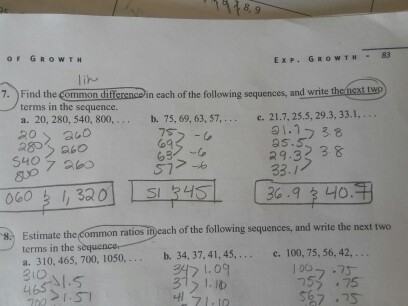 8, 9
OF GROWTH
EXP. GROWTH - 83
lin
7. Find the common difference in each of the following sequences, and write the next two
terms in the sequence.
a. 20, 280, 540, 800, . . .
20 260
280 260
540 260
800
060 & 1,320
b. 75, 69, 63, 57, . . .
75 -6
69
63 -6
57 -6
51 & 45
c. 21.7, 25.5, 29.3, 33.1, . . .
21.7 3.8
25.5
29.3 3.8
33.1
36.9 & 40.7
8. Estimate the common ratios in each of the following sequences, and write the next two
terms in the sequence.
a. 310, 465, 700, 1050, . . .
310
465 1.5
700 1.51
b. 34, 37, 41, 45, . . .
34 1.09
37 1.10
41 1.10
c. 100, 75, 56, 42, . . .
100 .75
75 .75
56 .75